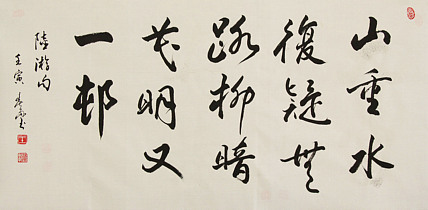 山重水
復疑無
路柳暗
花明又
一邨
陸游句
壬寅